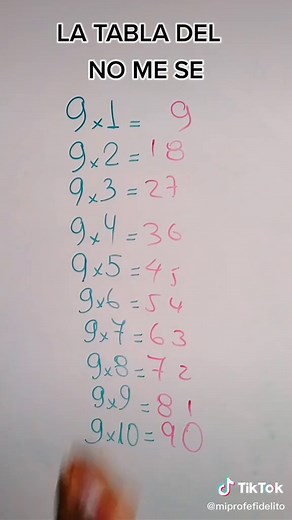 LA TABLA DEL
NO ME SE
9x1= 9
9x2=18
9x3=27
9x4=36
9x5=45
9x6=54
9x7=63
9x8=72
9x9=81
9x10=90
TikTok
@miprofefidelito